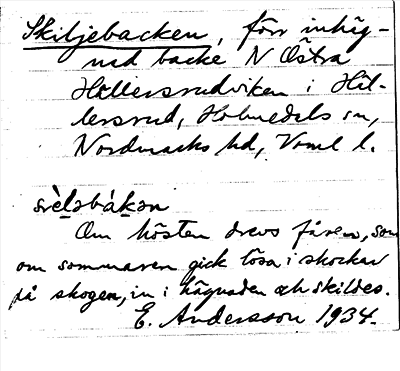 Skiljebacken, förr inhäg-
nad backe N Östra
Hillersrudviken i Hil-
lersrud, Holmedals sn,
Nordmarks hd, Vrml l.
Om hösten drevs fåren, som
om sommaren gick lösa i skockar
på skogen, in i hägnaden och skildes.
E. Andersson 1934.